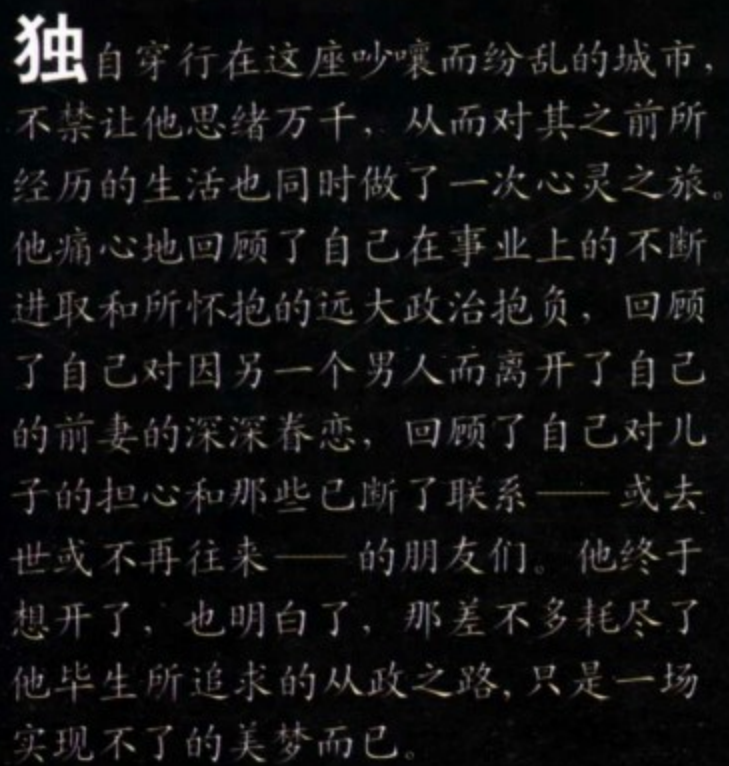 独自穿行在这座吵嚷而纷乱的城市，
不禁让他思绪万千，从而对其之前所
经历的生活也同时做了一次心灵之旅。
他痛心地回顾了自己在事业上的不断
进取和所怀抱的远大政治抱负，回顾
了自己对因另一个男人而离开了自己
的前妻的深深眷恋，回顾了自己对儿
子的担心和那些已断了联系——或去
世或不再往来——的朋友们。他终于
想开了，也明白了，那差不多耗尽了
他毕生所追求的从政之路，只是一场
实现不了的美梦而已。